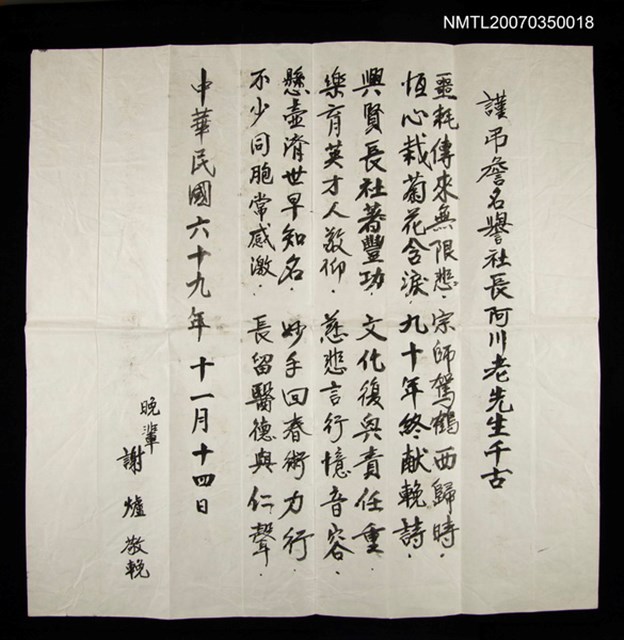 NMTL20070350018
謹弔詹名譽社長阿川老先生千古
噩耗傳來無限悲．宗師駕鶴西歸時．
恆心栽菊花含淚．九十年終献輓詩．
興賢長社著豐功．文化復興責任重．
樂育英才人敬仰．慈悲言行憶音容．
懸壺濟世早知名．妙手回春術力行．
不少同胞常感激．長留醫德與仁聲．
中華民國六十九年十一月十四日
晚輩謝爐敬輓